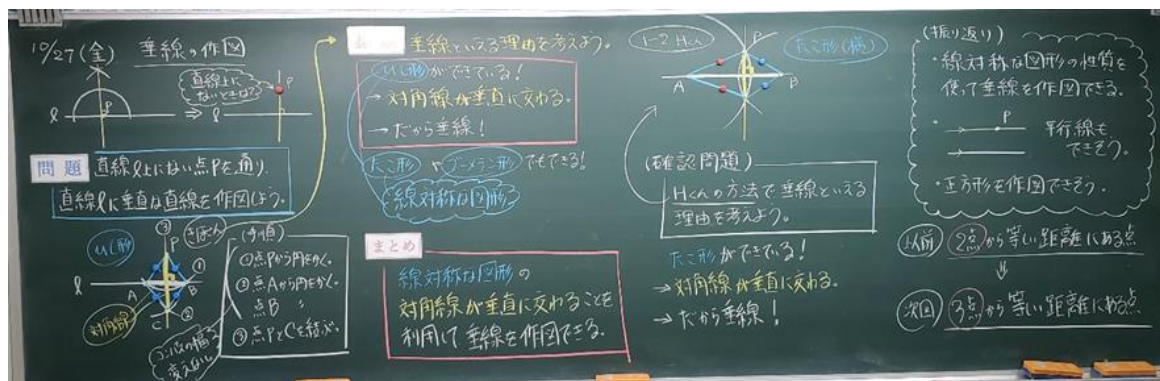 10/27(金) 垂線の作図
P
ℓ
⇒
直線上に
ないときは?
P
ℓ
問題
直線ℓ上にない点Pを通り、
直線ℓに垂直な直線を作図しよう。
ひし形
③
P
ℓ
A
B
C
①
②
対角線
コンパスの幅
変えない
(手順)
①点Pから円をかく。
②点Aから円をかく。
点B 〃
③点PとCを結ぶ。
垂線といえる理由を考えよう。
ひし形ができている!
→対角線が垂直に交わる。
→だから垂線!
たこ形やブーメラン形でもできる!
線対称な図形
まとめ
線対称な図形の
対角線が垂直に交わることを
利用して垂線を作図できる。
1-2 Hくん
たこ形(横)
P
A
B
(確認問題)
Hくんの方法で垂線といえる
理由を考えよう。
たこ形ができている!
→対角線が垂直に交わる。
→だから垂線!
(振り返り)
・線対称な図形の性質を
使って垂線を作図できる。
・
P
平行線も
できそう。
・正方形を作図できそう。
以前
2点から等しい距離にある点
⇓
次回
3点から等しい距離にある点